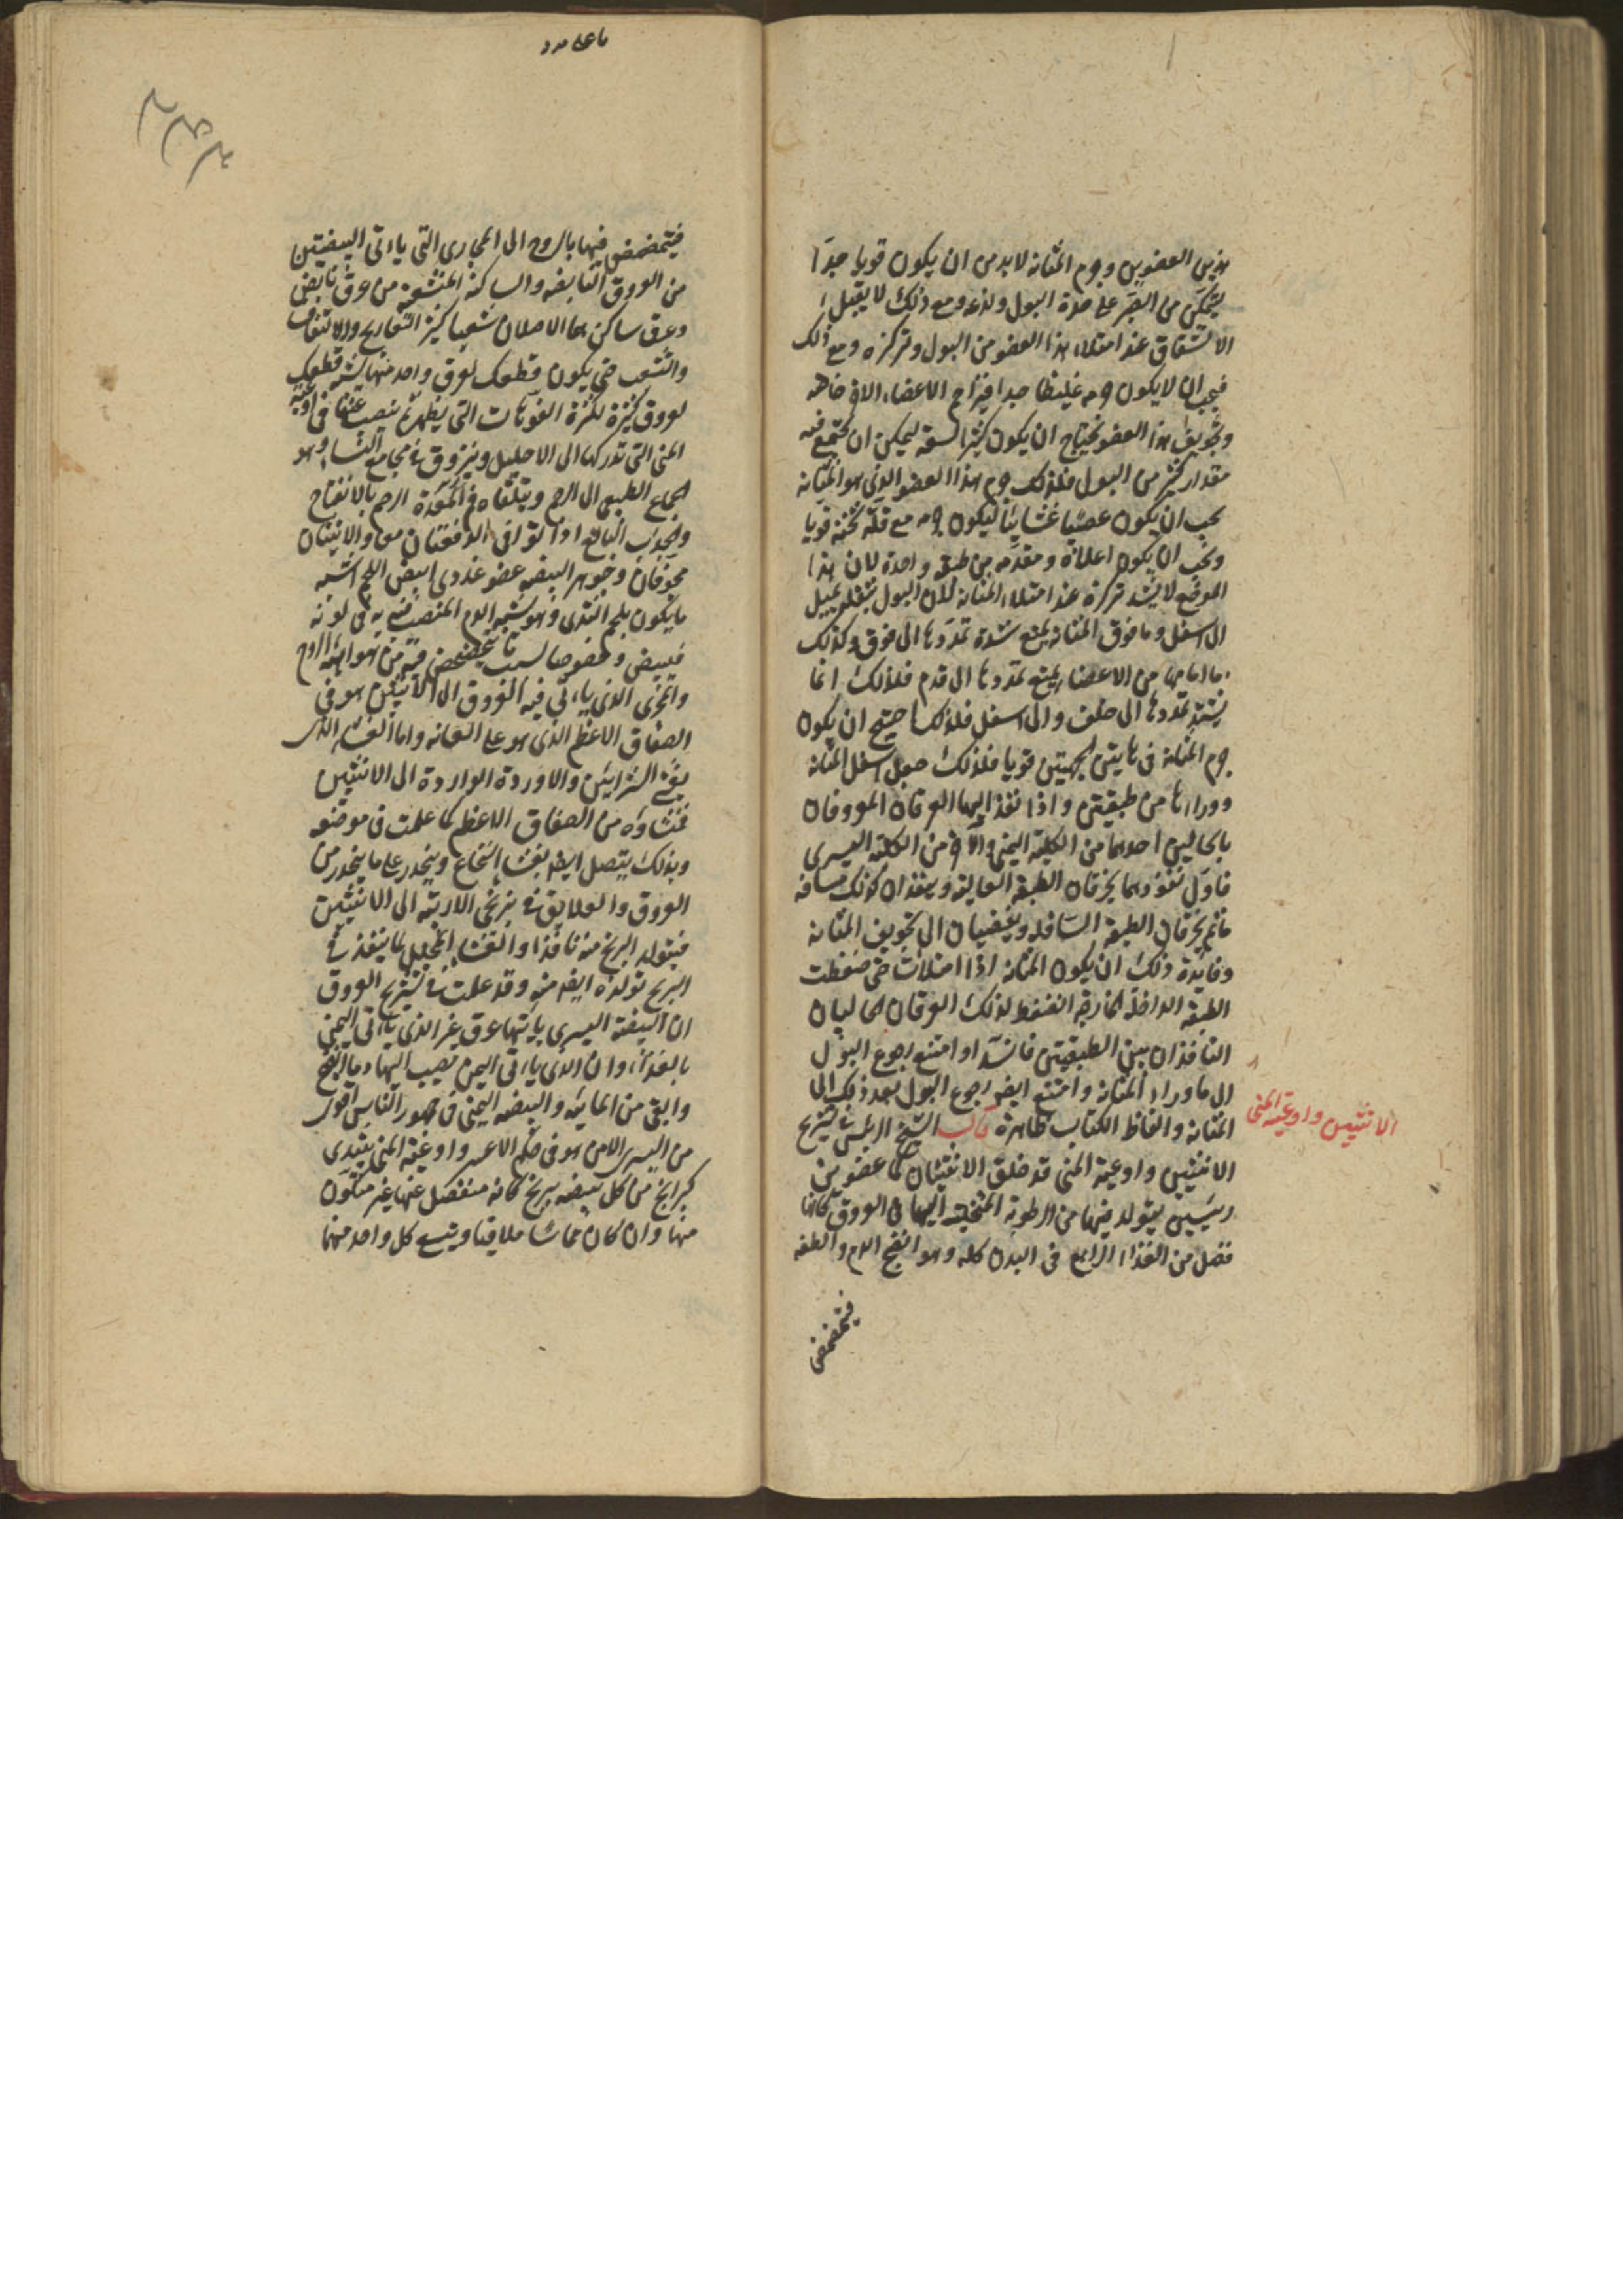 هذين العضوين وجرم المثانة لا بد من ان يكون قويا جدا
يتمكن من الصبر على حدة البول ولذعه ومع ذلك لا يقبل
الانشقاق عند امتلاء هذا العضو من البول وتمدده ومع ذلك
فيجب ان لا يكون جرمه غليظا جدا فيزاحم الاعضاء الاخر خاصة
وتجويف هذا العضو يحتاج ان يكون كثير السعة ليمكن ان يجتمع فيه
مقدار كثير من البول فلذلك جرم هذا العضو الذي هو المثانة
يجب ان يكون عصبيا غشائيا ليكون جرمه مع قلة ثخنه قويا
ويجب ان يكون اعلاه ومقدمه من طبقة واحدة لان هذا
الموضع لا يشتد تمدده عند امتلاء المثانة لان البول بثقله يميل
الى اسفل وما فوق المثانة يمنع شدة تمددها الى فوق وكذلك
ما امامها من الاعضاء يمنع تمددها الى قدام فلذلك انما
يشتد تمددها الى خلف والى اسفل فلذلك احتيج ان يكون
جرم المثانة في هاتين الجهتين قويا فلذلك جعل اسفل المثانة
ووراءها من طبقتين واذا نفذ اليها العرقان المعروفان
بالحالبين احدهما من الكلية اليمنى والآخر من الكلية اليسرى
فاول نفوذهما يخرقان الطبقة العالية وينفذان كذلك مسافة
ما ثم يخرقان الطبقة السافلة ويفضيان الى تجويف المثانة
وفايدة ذلك ان يكون المثانة اذا امتلأت حتى ضغطت
الطبقة الداخلة الخارجة انضغط لذلك العرقان الحالبان
النافذان بين الطبقتين فانسدا وامتنع رجوع البول
الى ما وراء المثانة وامتنع ايضا رجوع البول بعد ذلك الى
المثانة والفاظ الكتاب ظاهرة قال الشيخ الرئيس في تشريح
الانثيين واوعية المني
الانثيين واوعية المني قد خلق الانثيان كما عضوين
رئيسين يتولد فيهما من الرطوبة المتحلبة اليهما في العروق كانها
فضل من الغذاء الرابع في البدن كله وهو انضج الدم والطفه
فيتمخض
ما على مدد
فيتمخض فيها بالروح الى المجاري التي ياتي البيضتين
من العروق النابضة والساكنة المتشعبة من عرق نابض
وعرق ساكن هما الاصلان شعبا كثيرة التعاريج والالتفاف
والتشعب حتى يكون قطعك لعرق واحد منها يشبه قطعك
لعروق كثيرة لكثرة الفوهات التي يظهر ثم ينصب عنها في اوعية
المني التي نذكرها الى الاحليل وينزرق في مجامع النساء وهو
الجماع الطبيعي الى الرحم ويتلقاه فم الرحم بالانفتاح
والجذب البالغ اذا توافى الدفعتان معا والانثيان
مجوفتان وجوهر البيضة عضو غددي ابيض اللحم اشبه
ما يكون بلحم الثدي وهو يشبه الدم المنصب فيه به في لونه
فيبيض وخصوصا لسبب ما يتمخض فيه من هوائية الروح
والمجرى الذي ياتي فيه العروق الى الانثيين هو في
الصفاق الاعظم الذي هو على العانة واما الغشاء الذي
يغشى الشرايين والاوردة الواردة الى الانثيين
فمنشاؤه من الصفاق الاعظم كما علمت في موضعه
وبذلك يتصل ايضا بغشاء النخاع وينحدر على ما ينحدر من
العروق والعلايق في بربخي الاربية الى الانثيين
فيتولد البربخ منه نافذا والغشاء المجلل لما ينفذ في
البربخ تولده ايضا منه وقد علمت في تشريح العروق
ان البيضة اليسرى ياتيها عرق غير الذي ياتي اليمنى
بالغذاء وان الذي ياتي اليمنى يصب اليها دما انضج
وانقى من المائية والبيضة اليمنى في جمهور الناس اقوى
من اليسرى الا من هو في حكم الاعسر واوعية المني يبتدي
كبرابخ من كل بيضة بربخ كانه منفصل عنها غير متكون
منها وان كان مماسا ملاقيا ويتسع كل واحد منهما